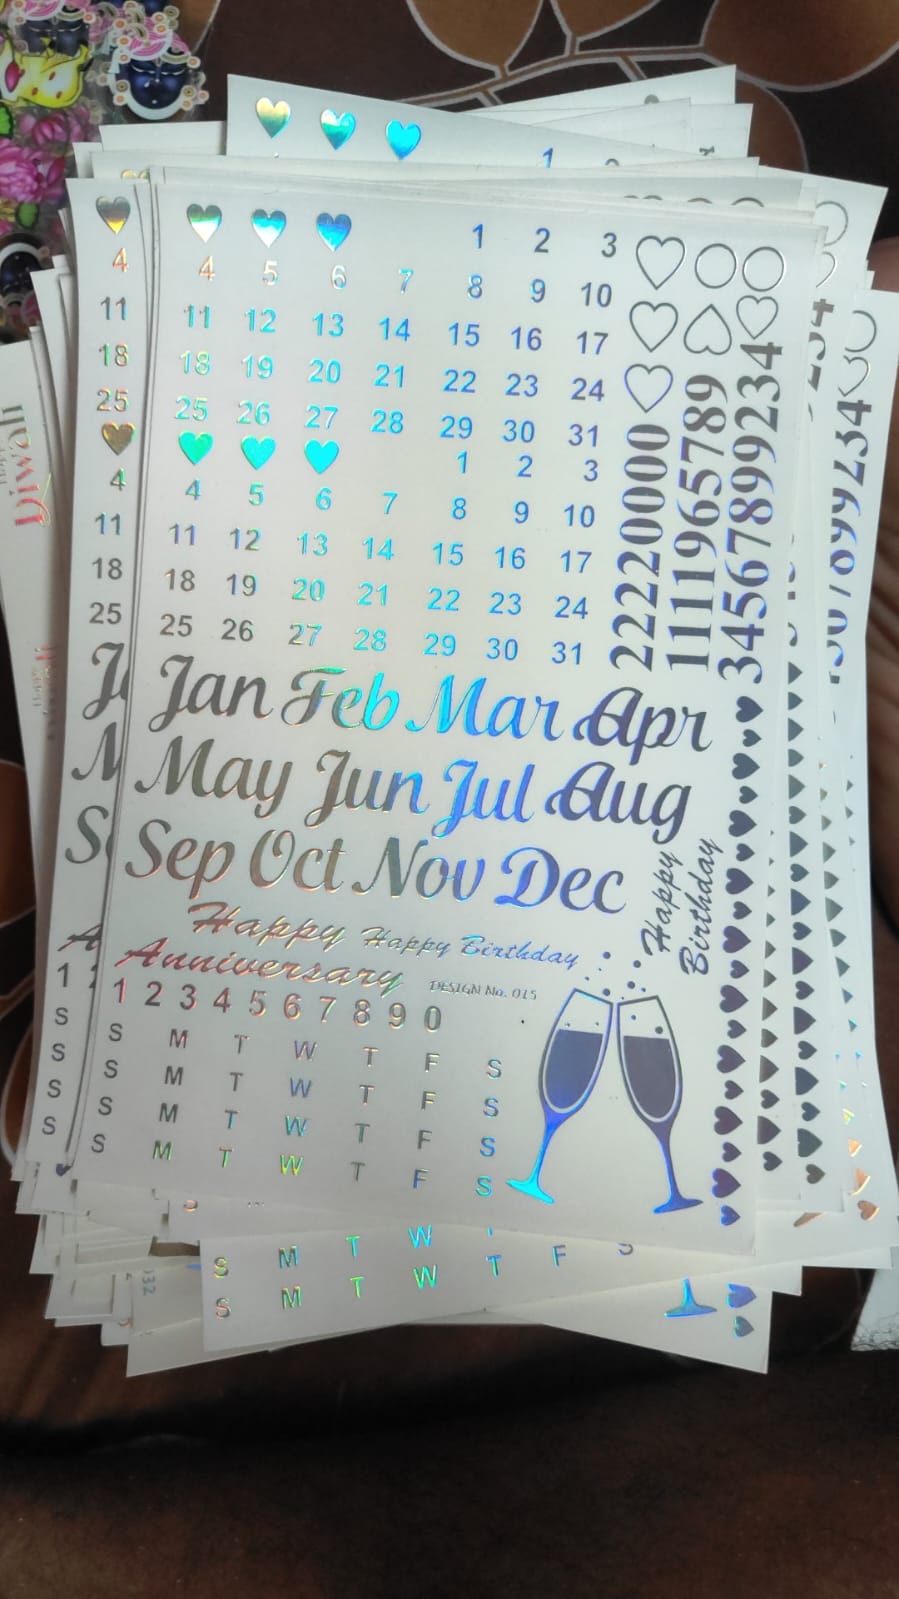 1 2 3
4 5 6 7 8 9 10
11 12 13 14 15 16 17
18 19 20 21 22 23 24
25 26 27 28 29 30 31
1 2 3
4 5 6 7 8 9 10
11 12 13 14 15 16 17
18 19 20 21 22 23 24
25 26 27 28 29 30 31
2220000
1111965789
34567899234
Jan Feb Mar Apr
May Jun Jul Aug
Sep Oct Nov Dec
Happy
Anniversary
Happy Birthday
Happy
Birthday
DESIGN No. 015
1 2 3 4 5 6 7 8 9 0
S M T W T F S
S M T W T F S
S M T W T F S
S M T W T F S
4
11
18
25
4
11
18
25
1
S
S
S
S
1
S M T W
S M T W T F S
Diwali
032